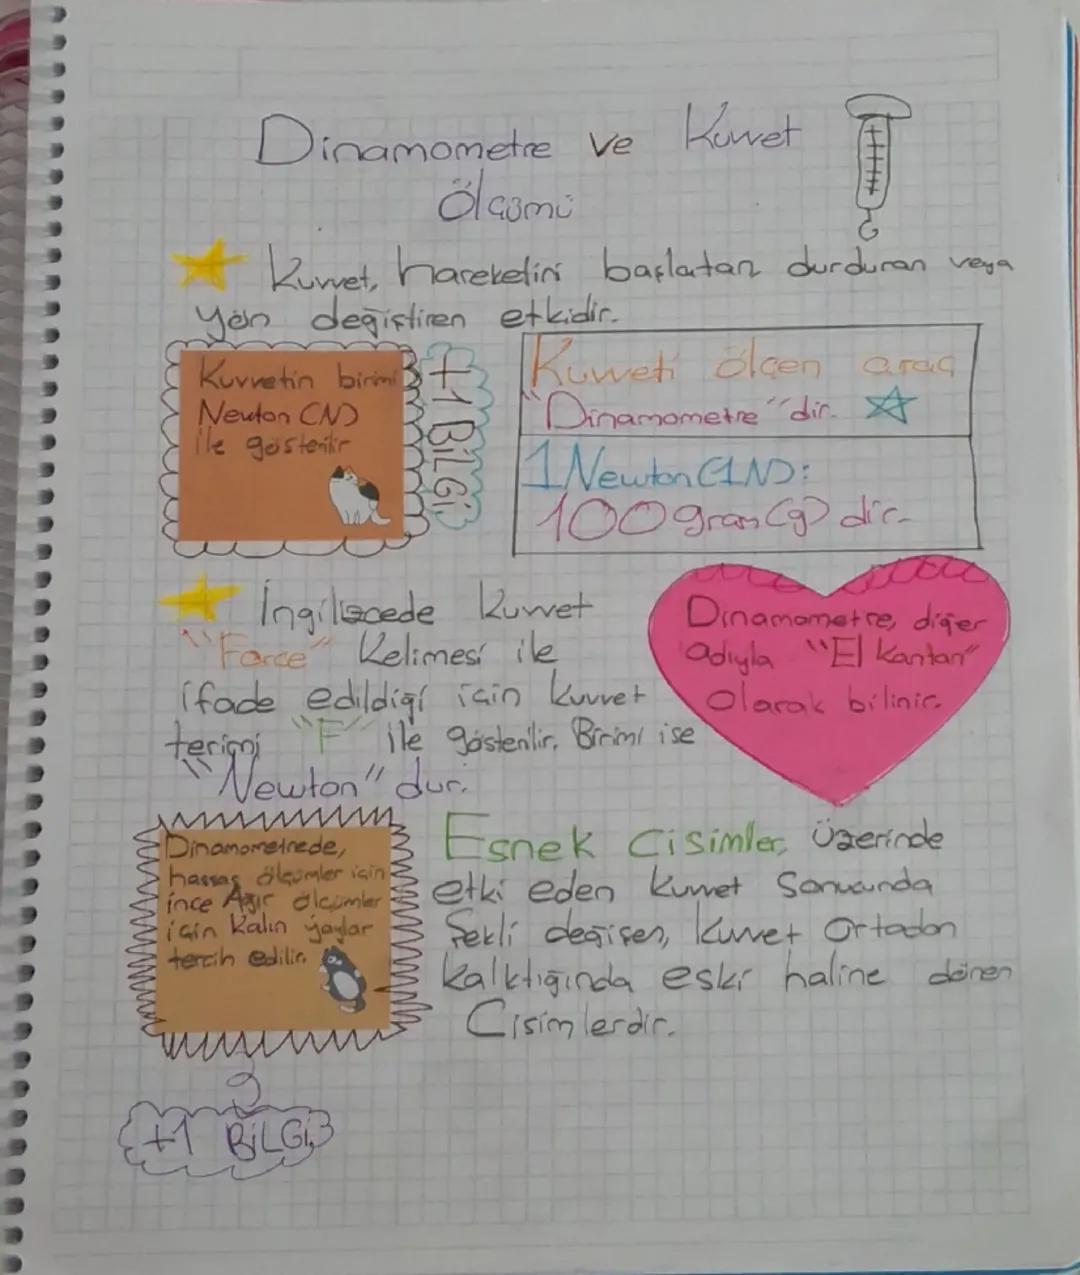 Dinamometre ve Kuvvet
Ölçümü
Kuvvet, hareketini başlatan durduran veya
yön değiştiren etkidir.
Kuvvetin birimi
Newton (N)
ile gösterilir
+1 BİLGİ
Kuvveti ölçen araç
"Dinamometre" dir.
1 Newton (1N):
100 gram (g) dir.
İngilizcede kuvvet
"Force" Kelimesi ile
ifade edildiği için kuvvet
"F" ile gösterilir. Birimi ise
"Newton" dur.
Dinamometre, diğer
adıyla "El kantarı"
olarak bilinir.
Dinamometrede,
hassas ölçümler için
ince Ağır ölçümler
için Kalın yaylar
tercih edilir.
+1 BİLGİ
Esnek Cisimler, Üzerinde
etki eden kuvvet Sonucunda
Şekli değişen, kuvvet Ortadan
kalktığında eski haline dönen
Cisimlerdir.